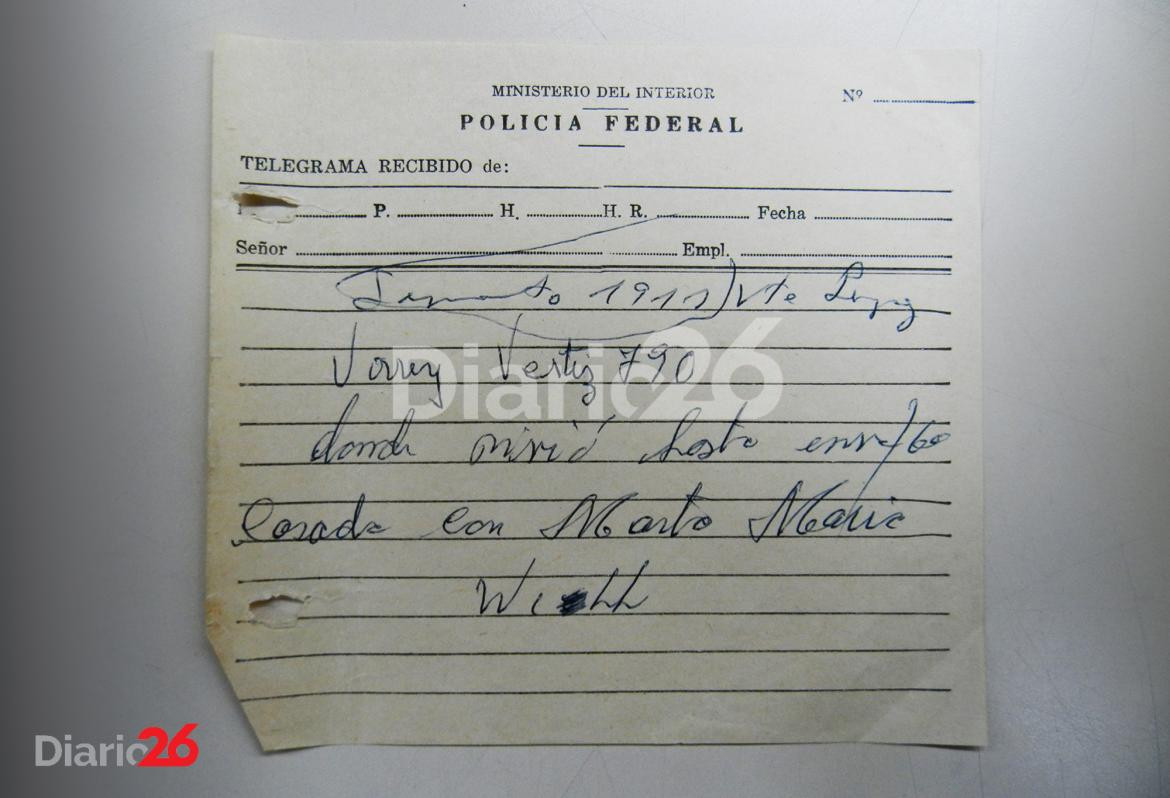 MINISTERIO DEL INTERIOR
Nº
POLICIA FEDERAL
TELEGRAMA RECIBIDO de:
P. H. H. R. Fecha
Señor Empl.
1911) Vte Lopez
Virrey Vertiz 790
Diario26
donde vivió hasta enro/60
Casado con Marta Maria
Wi ll
Diario26